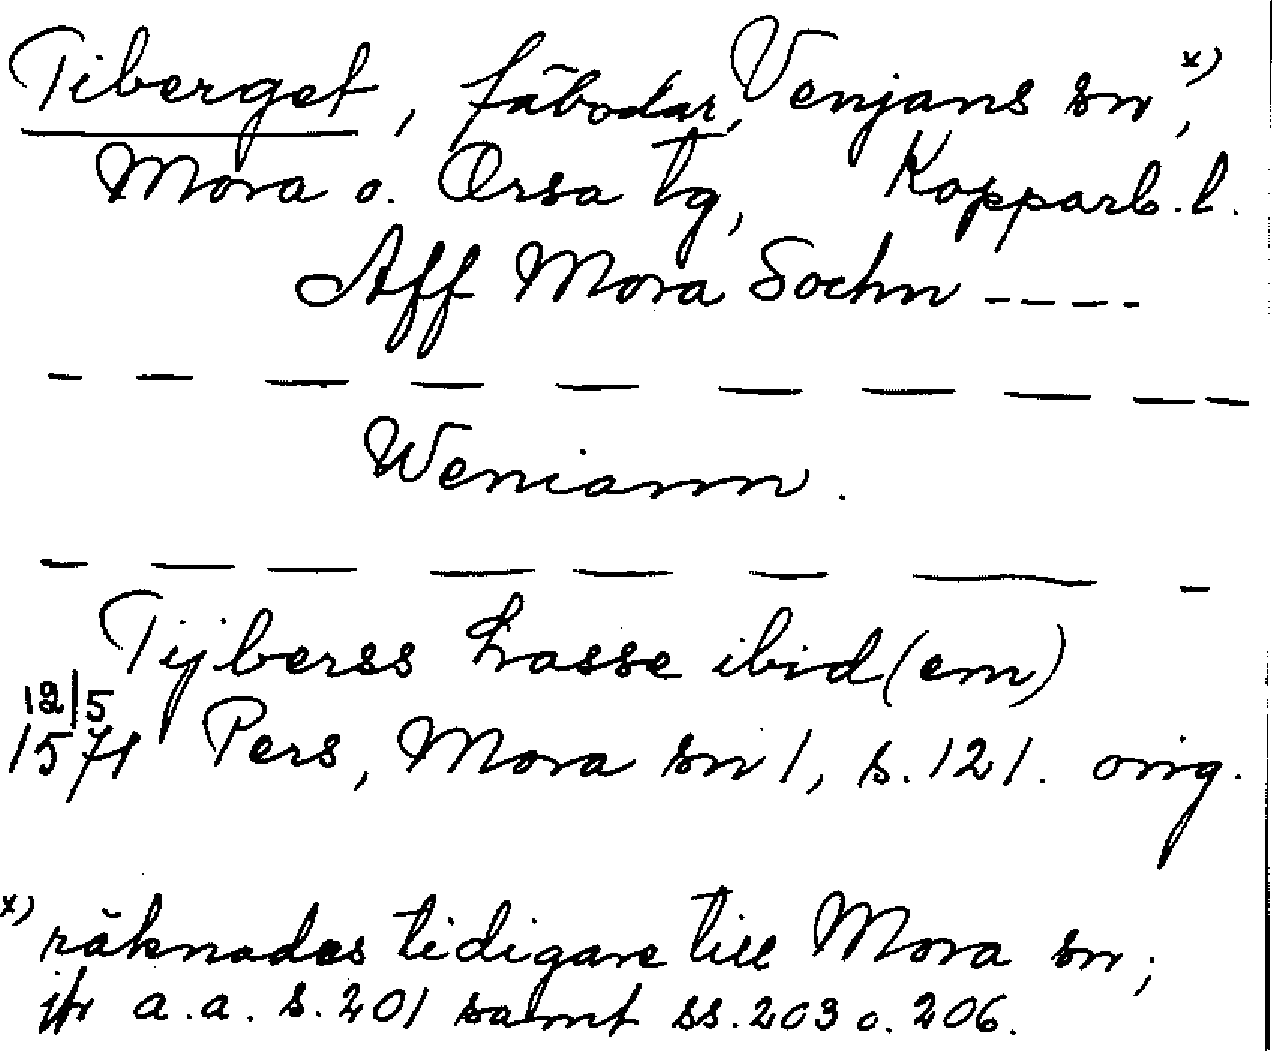 Tiberget, fäbodar, Venjans sn x),
Mora o. Orsa tg, Kopparb. l.
Aff Mora Sochn ----
— — — — — — — — — —
Weniann.
— — — — — — — —
Tijberss Lasse ibid(em)
12/5
1571 Pers, Mora sn 1, s. 121. orig.
x) räknades tidigare till Mora sn;
jfr a.a. s. 201 samt ss. 203 o. 206.